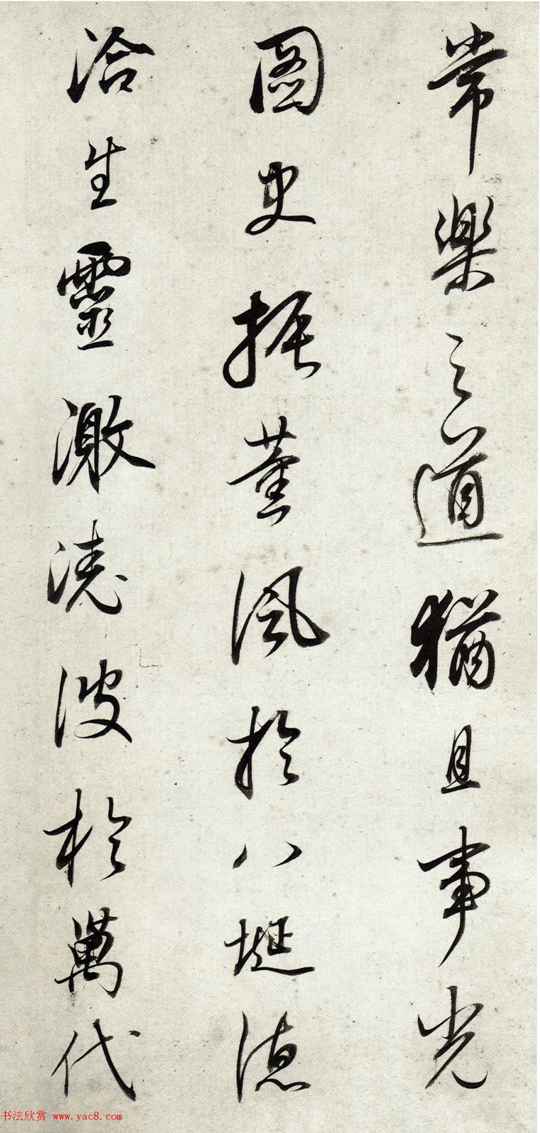 常樂之道猶且事光
圖史振薰風於八埏德
洽生靈激清波於萬代
书法欣赏 www.yac8.com